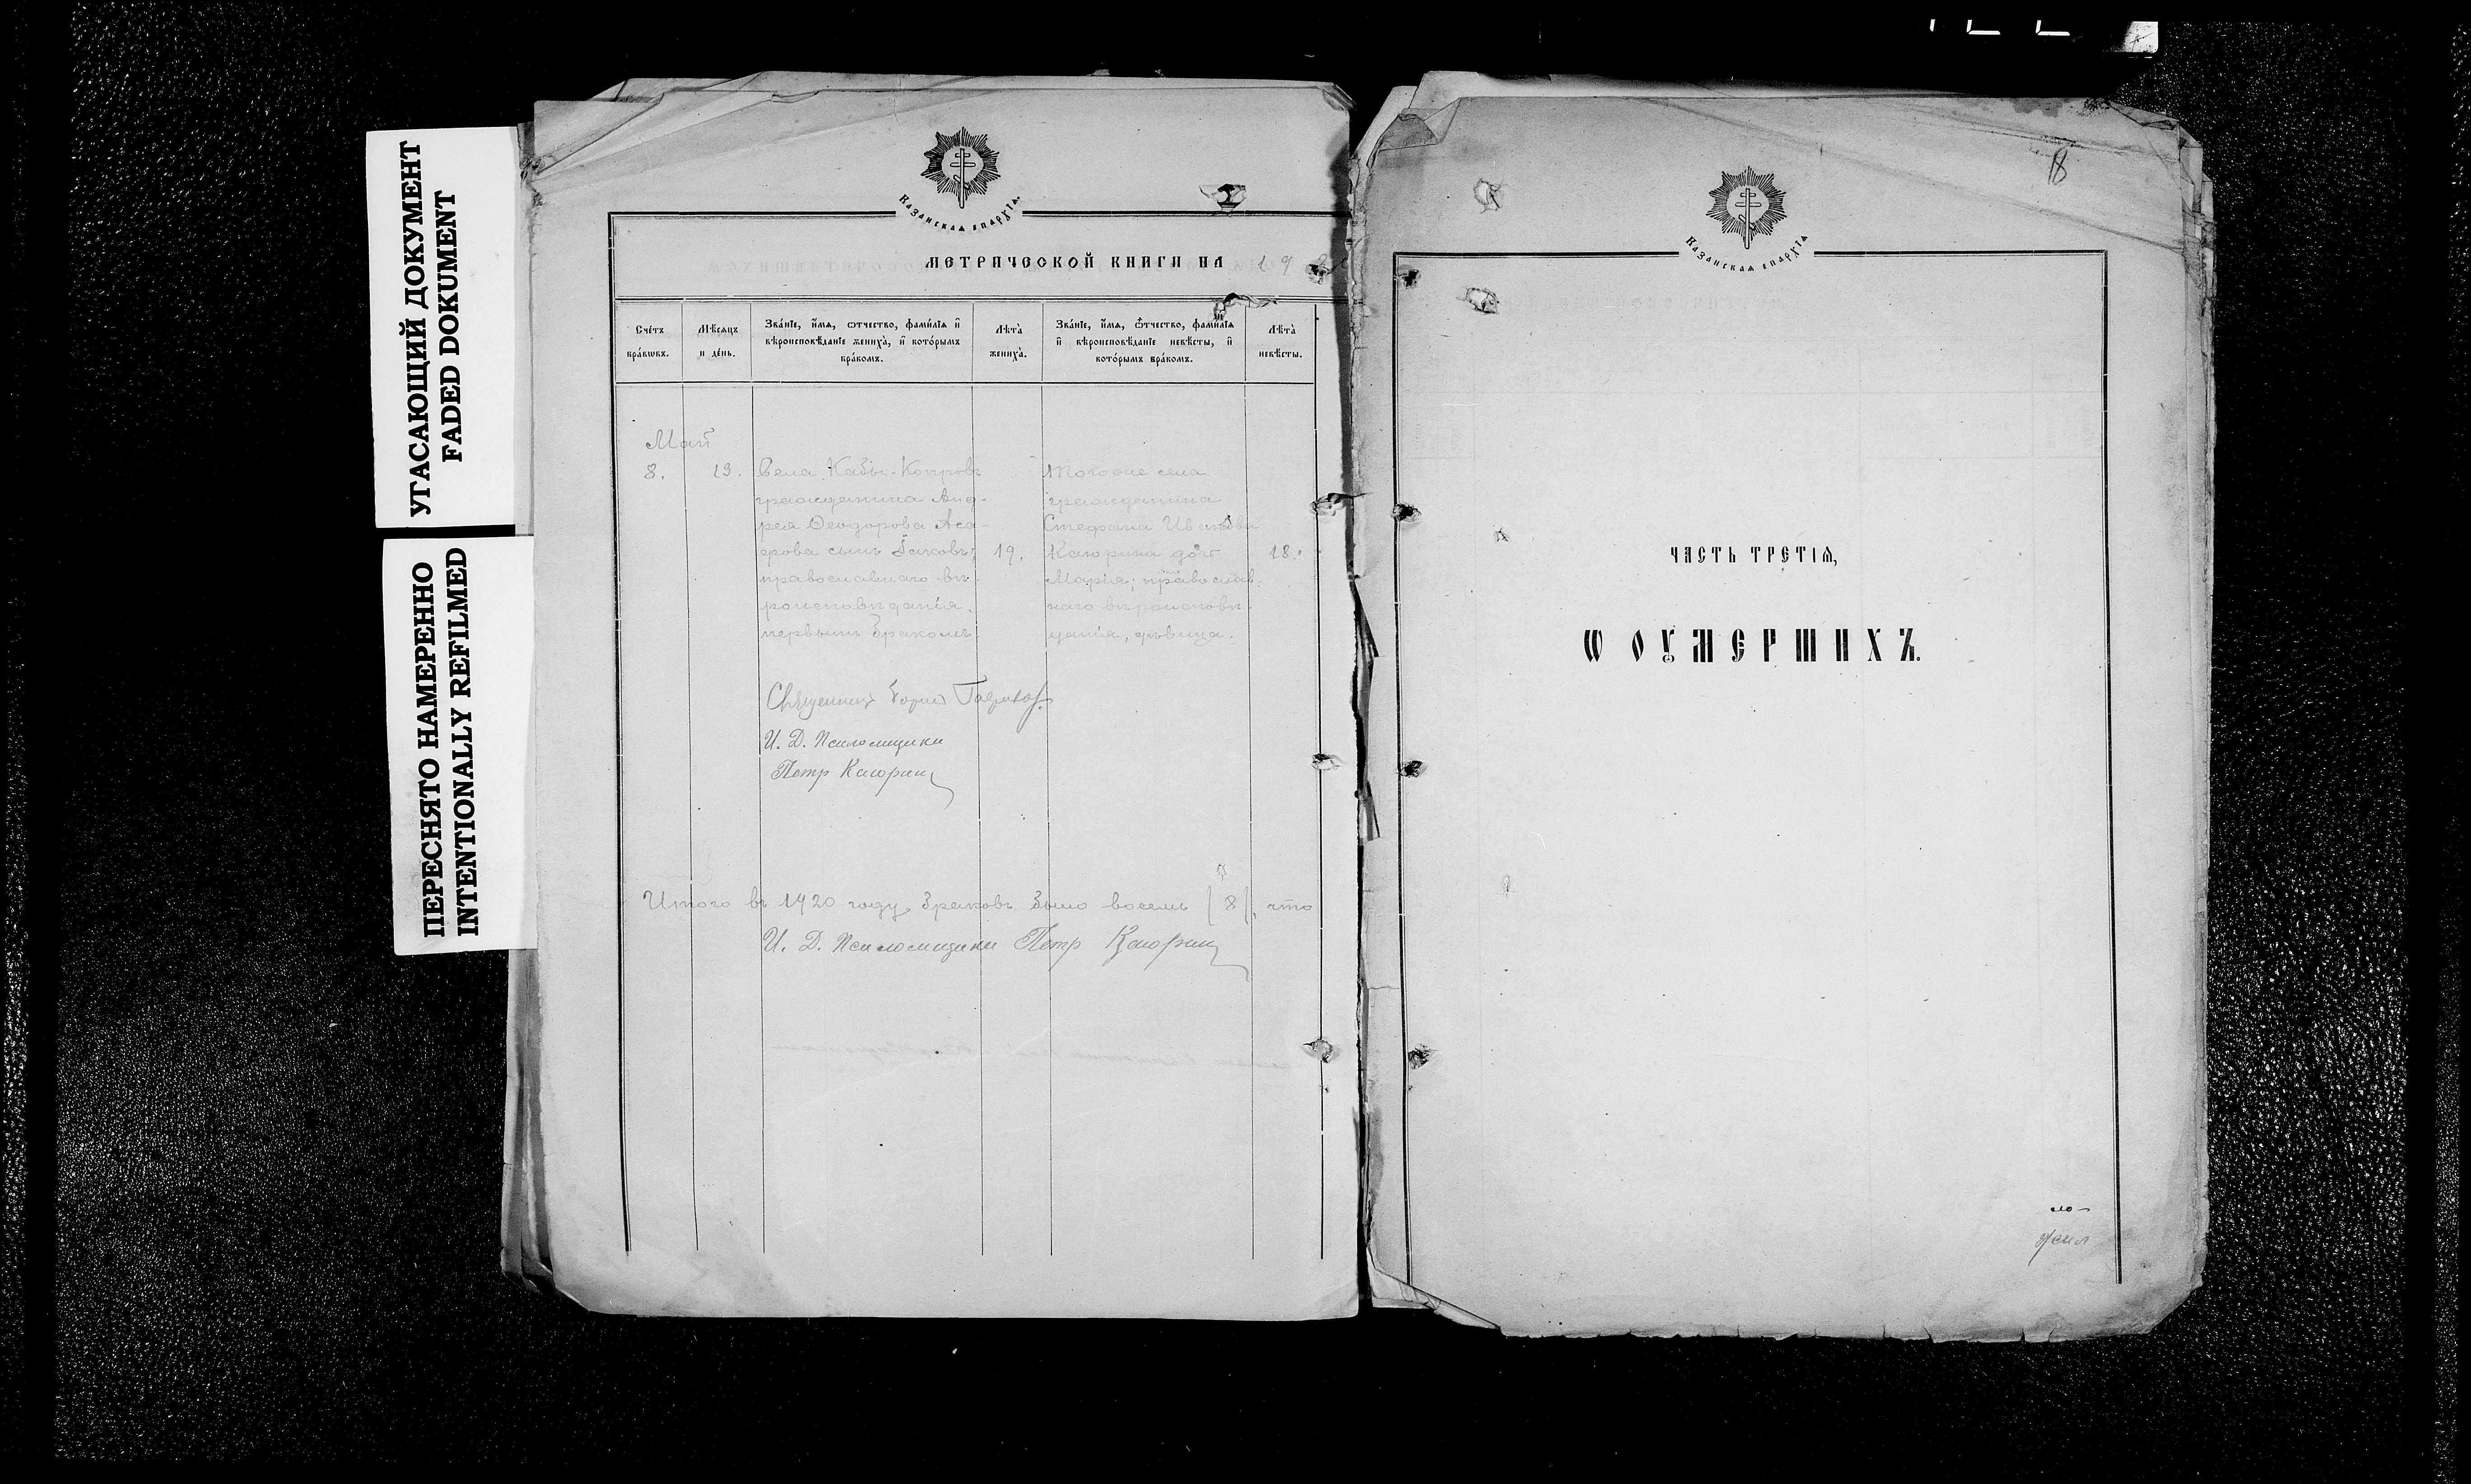 УГАСАЮЩИЙ ДОКУМЕНТ
FADED DOKUMENT
ПЕРЕСНЯТО НАМЕРЕННО
INTENTIONALLY REFILMED
Казанская епархїѧ.
МЕТРИЧЕСКОЙ КНИГИ НА 19
Счétъ бра́кѡвъ.
Мѣсяцъ и де́нь.
Зва́нїе, и́мѧ, ѻтчество, фами́лїѧ и вѣроисповѣданїе жениха̀, и кото́рымъ бра́комъ.
Лѣта̀ жениха̀.
Зва́нїе, и́мѧ, ѻ́тчество, фами́лїѧ и вѣроисповѣданїе невѣсты, и кото́рымъ бра́комъ.
Лѣта̀ невѣсты.
Май
8. 13.
Села Кабы-Копровъ
гражданина Анд-
рея Ѳеодорова
сынъ Іаковъ,
православнаго вѣ-
роисповѣданія,
первымъ бракомъ
19.
Тогоже села
гражданина
Стефана Иванова
Каюрина дочь
Марія, православ-
наго вѣроисповѣ-
данія, дѣвица.
18.
Священникъ
И. Д. Псаломщика
Петр Каюрин
Итого въ 1920 году браковъ было восемь (8), что
И. Д. Псаломщика Петр Каюрин
18
Казанская епархїѧ
ЧАСТЬ ТРЕТІѦ,
Ѡ ОУМЕРШИХЪ.
ло-
жил